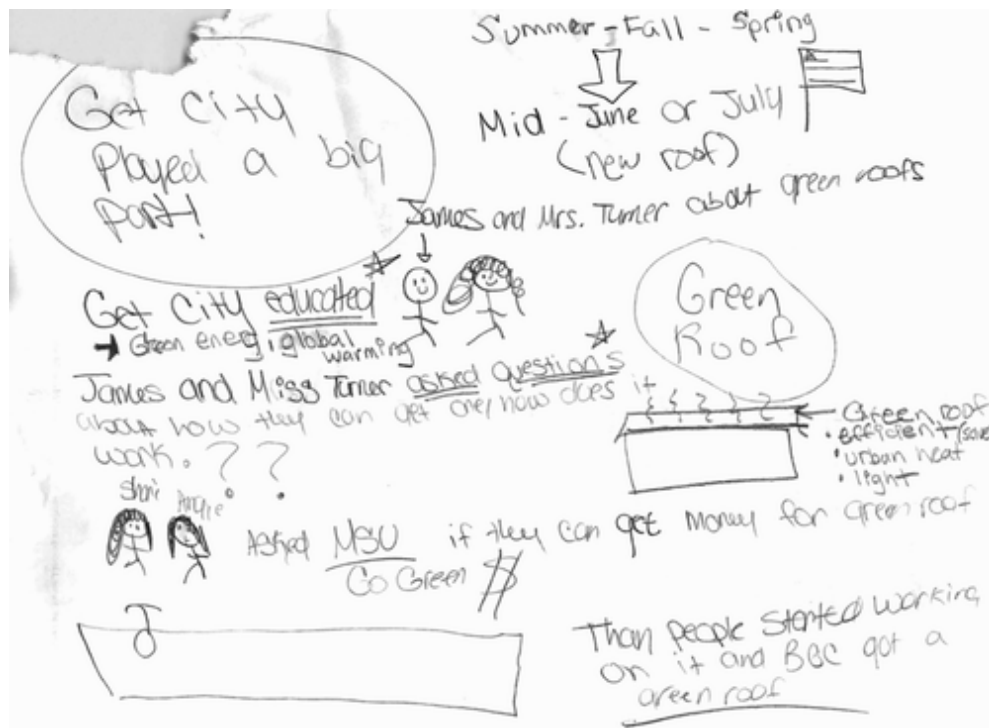 Summer - Fall - Spring
Mid - June or July
(new roof)
Get City
Played a big
part!
James and Mrs. Turner about green roofs
Get City educated
Green energ, global
warming
James and Miss Turner asked questions
about how they can get one/how does it
work. ? ?
Green
Roof
Green roof
• efficient (save
• urban heat
• light
Shari
Asked MSU if they can get money for green roof
Go Green $
Than people started working
on it and BGC got a
green roof